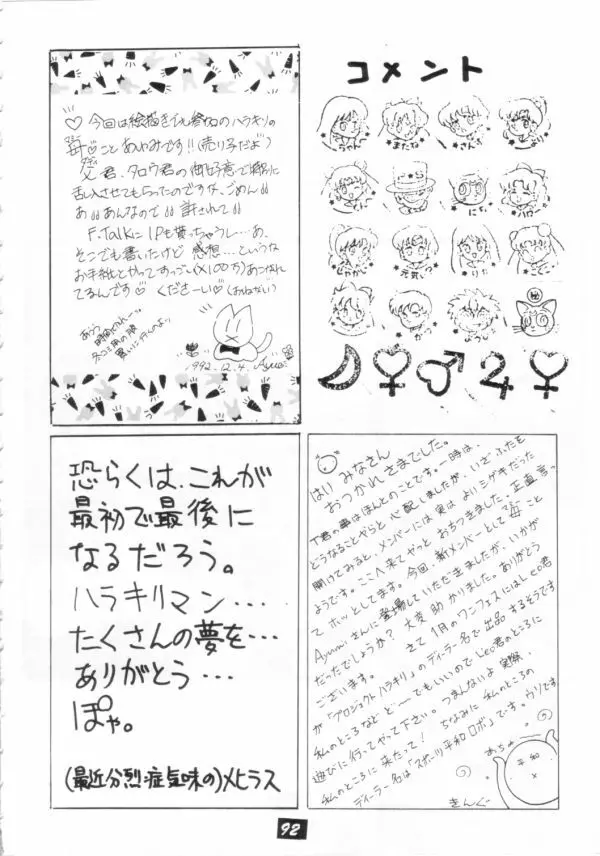 コメント
♡今回は絵描きでも登場のハラキリの
海♡ことあゆみです!!(売り子だよ♡)
父君、タロウ君の御好意で
乱入させてもらったのですが、ごめん
あ あんなので 許されて
F.Talkに1Pも貰っちゃうし…あ、
そこでも書いたけど 感想…というな
お手紙とやってすっごい(×100万)あこがれ
てるんです♡ くださーい♡(おねがい)
あうう
時間が
冬コミ用の服
買いに行くのよ
1992.12.4. Ayumi
まこちゃん
元気いっぱい
恐らくは、これが
最初で最後に
なるだろう。
ハラキリマン…
たくさんの夢を…
ありがとう…
ぽゃ。
(最近分烈症気味の)メヒラス
はい みなさん
おつかれさまでした。
T君の事はほんとのことです。一時は、
どうなることやらと心配しましたが、いざふたを
開けてみると、メンバーには実はよいシゲキだった
ようです。ここへ来てやっとおちつきました。正直言っ
てホッとしてます。今回、新メンバーとして海こと
Ayumiさんに登場していただきましたが、いかが
だったでしょうか? 大変助かりました。ありがとう
ございます。 さて1月のワンフェスにはLeo君
が「プロジェクトハラキリ」のディーラー名で出品するそうです
私のところなどど〜でもいいのでLeo君のところに
遊びに行ってやって下さい。つまんないよ実際、
私のところに来たって! ちなみに私のところの
ディーラー名は「スポーツ平和ロボ」です。ウソです
めちゃ
平和
きんぐ
92